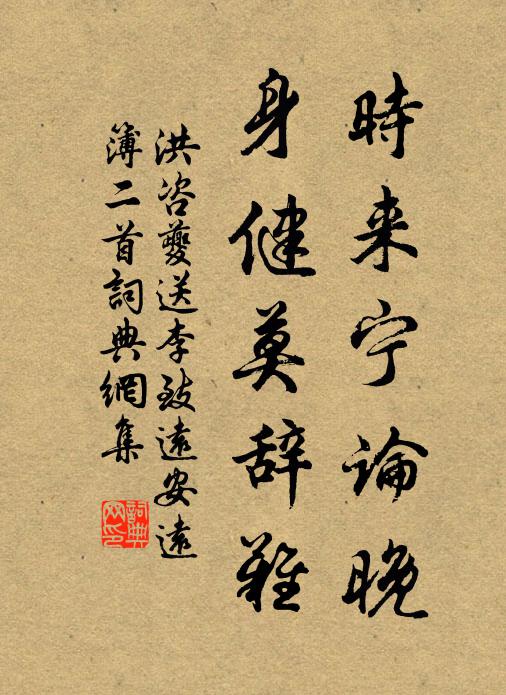 時来宁論晚
身健莫辞難
洪咨夔送李致遠安遠
簿二首詞典網集
詞典網印